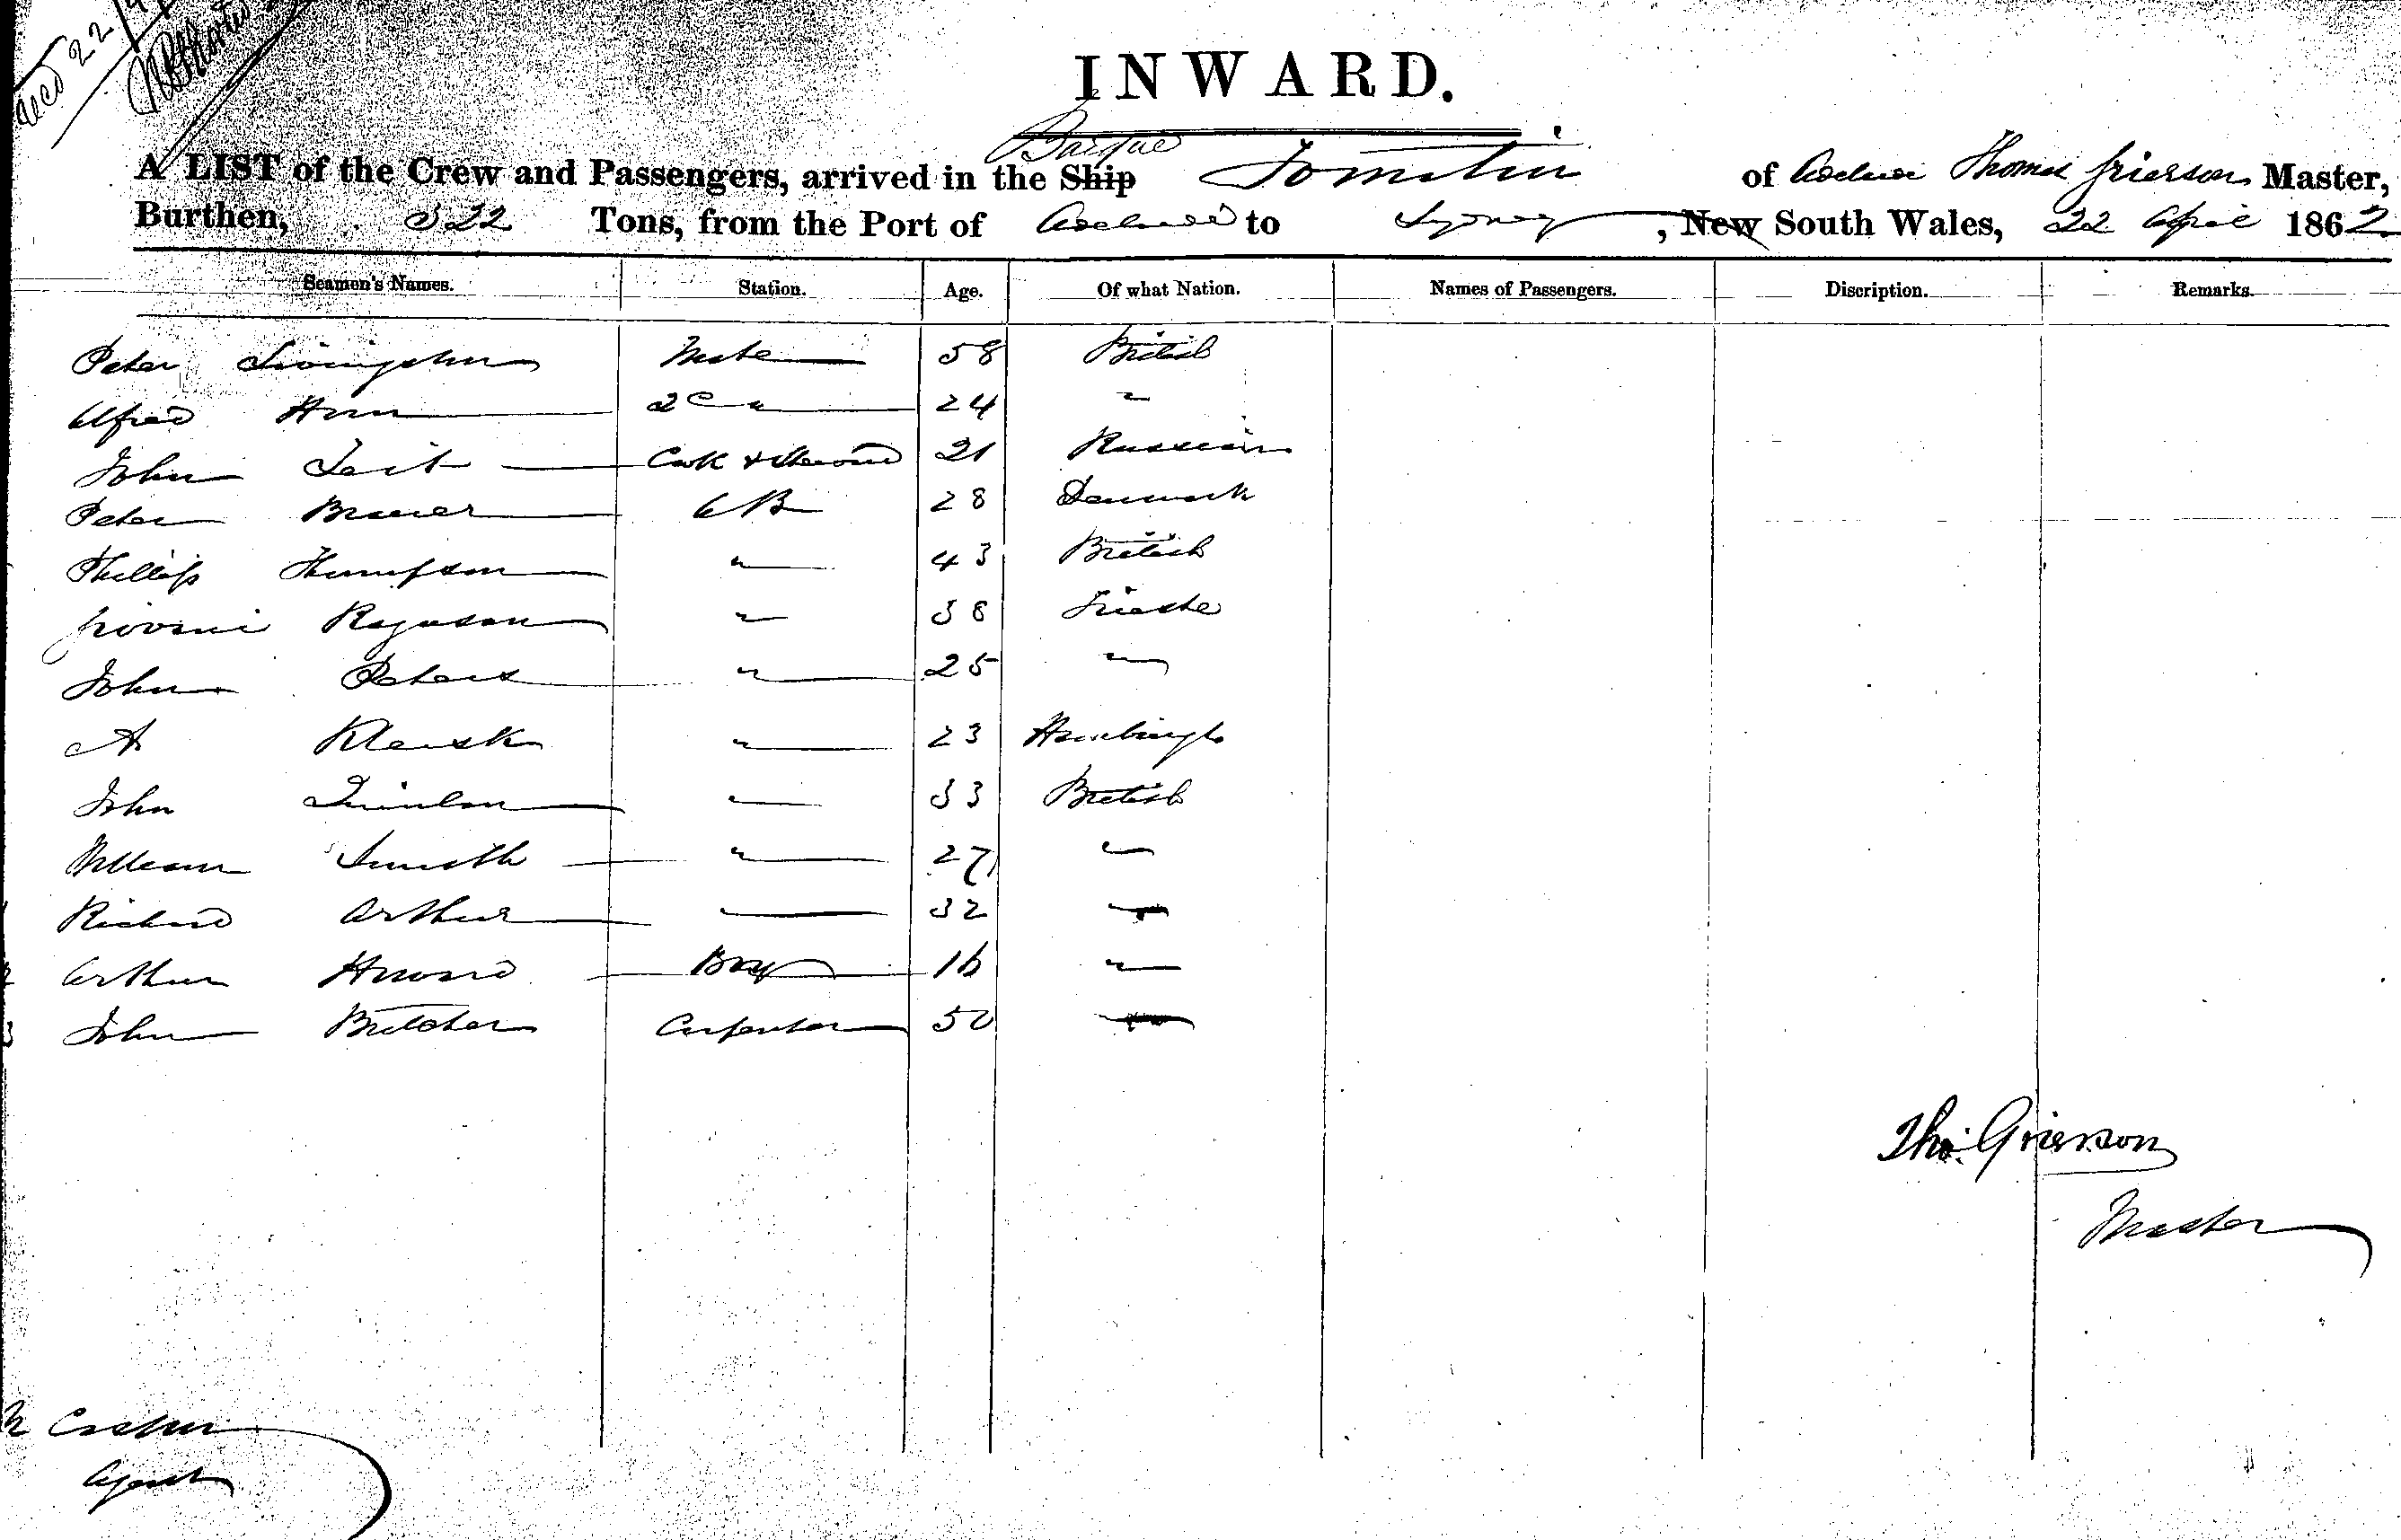 INWARD.
A LIST of the Crew and Passengers, arrived in the Ship Barque Tomatin of Adelaide Thomas Grierson Master,
Burthen, 322 Tons, from the Port of Adelaide to Sydney, New South Wales, 22 April 1862
Seamen's Names. Station. Age. Of what Nation. Names of Passengers. Discription. Remarks.
Peter Livingston Mate 58 British
Alfred 2d " 24 "
John Tait Cook & Steward 21 Russian
Peter AB 28 Denmark
Phillip Thompson " 43 British
Giovani " 38 Trieste
John Peters " 25 "
A " 23 Hamburgh
John Quinlan " 33 British
William Smith " 27 "
Richard Arthur 32 "
Arthur Howard Boy 16 "
John Butcher Carpenter 50 "
Tho. Grierson
Master
Agent